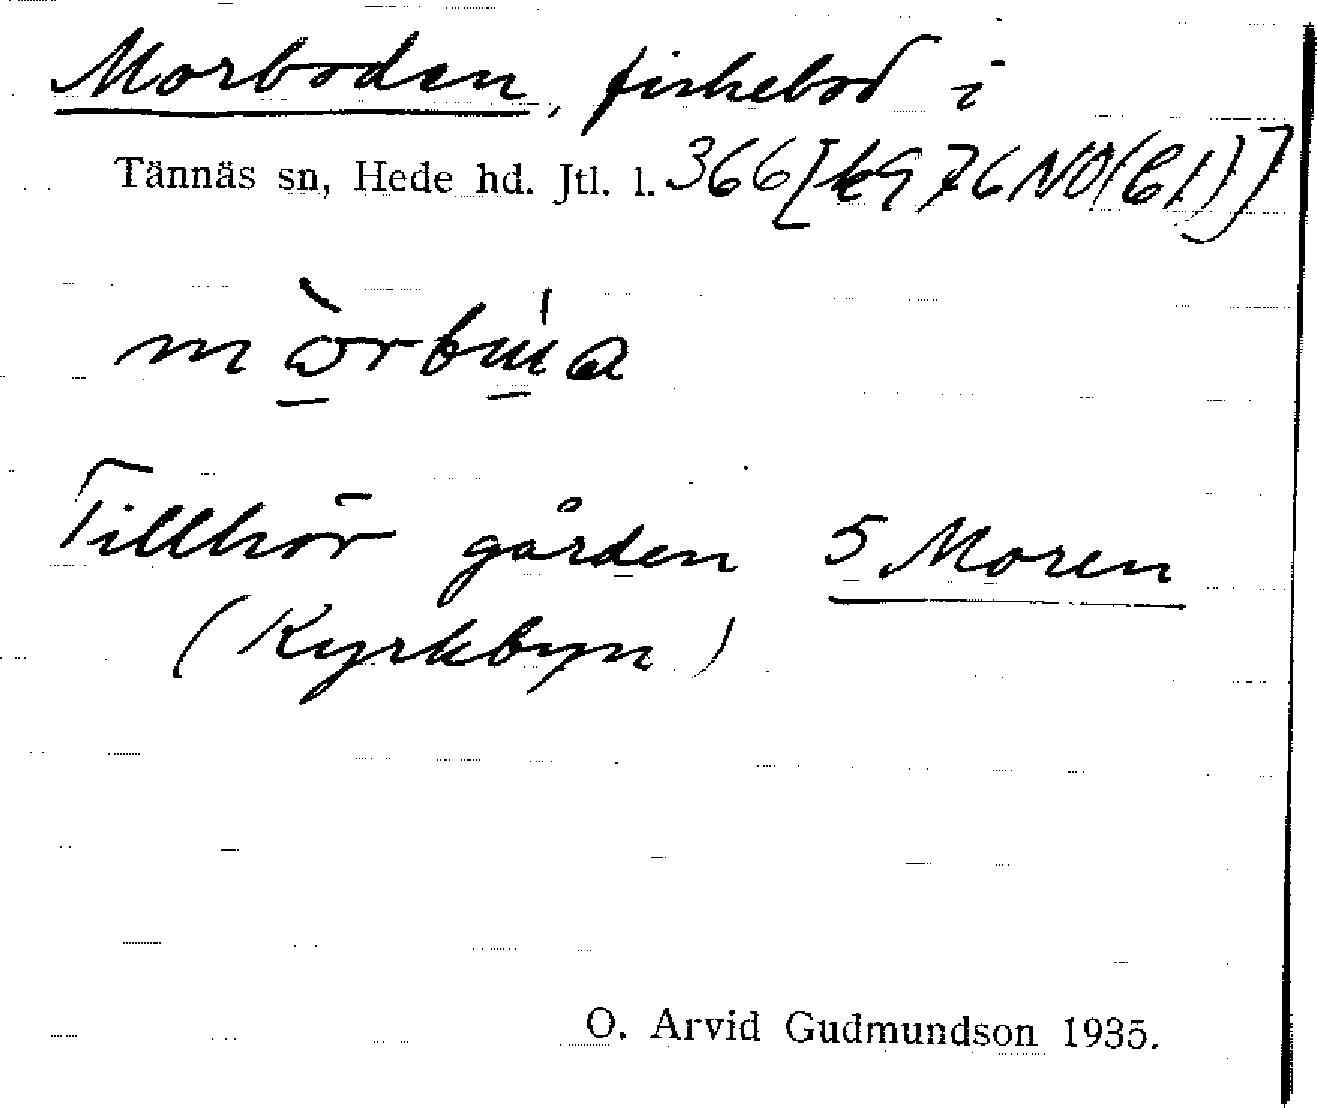 Morboden, fiskebod i
Tännäs sn, Hede hd. Jtl. l. 366 [k976NO(61)]
Tillhör gården 5 Moren
(Kyrkbyn)
O. Arvid Gudmundson 1935.